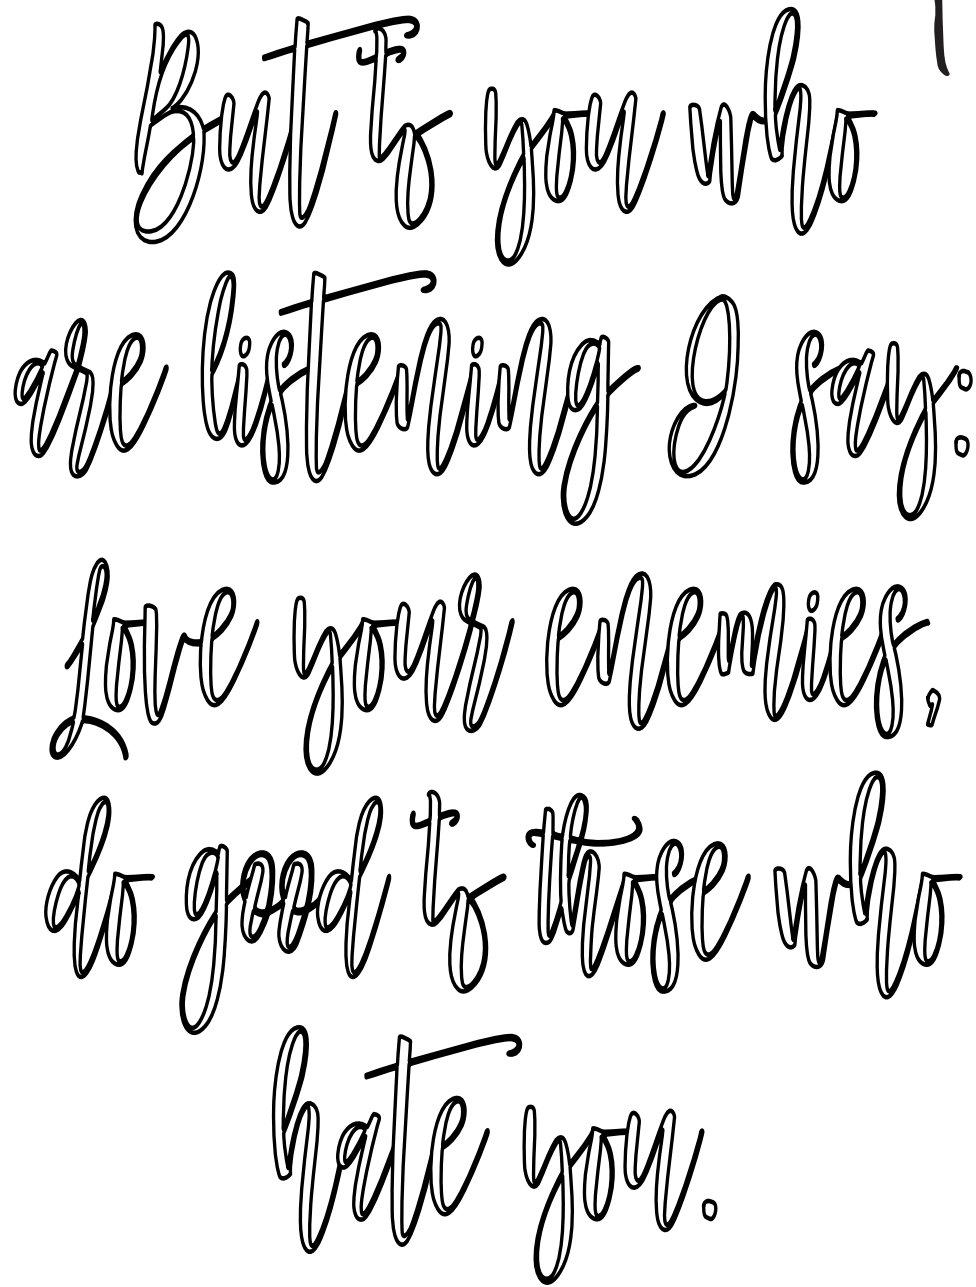 But to you who
are listening I say:
Love your enemies,
do good to those who
hate you.